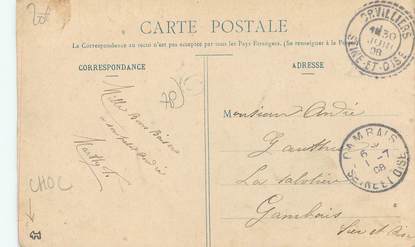 20€
CARTE POSTALE
La Correspondance au recto n'est pas acceptée par tous les Pays Étrangers. (Se renseigner à la Poste)
ORVILLIERS
30
JUIN
08
SEINE-ET-OISE
CORRESPONDANCE
ADRESSE
Mille Bons Baisers
à son petit André
Marthe
CHOC
Monsieur André
La
Gambais
Seine et Oise
GAMBAIS
1-7
08
SEINE ET OISE